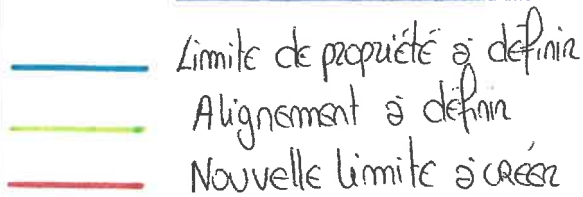 Limite de propriété à définir
Alignement à définir
Nouvelle limite à créer